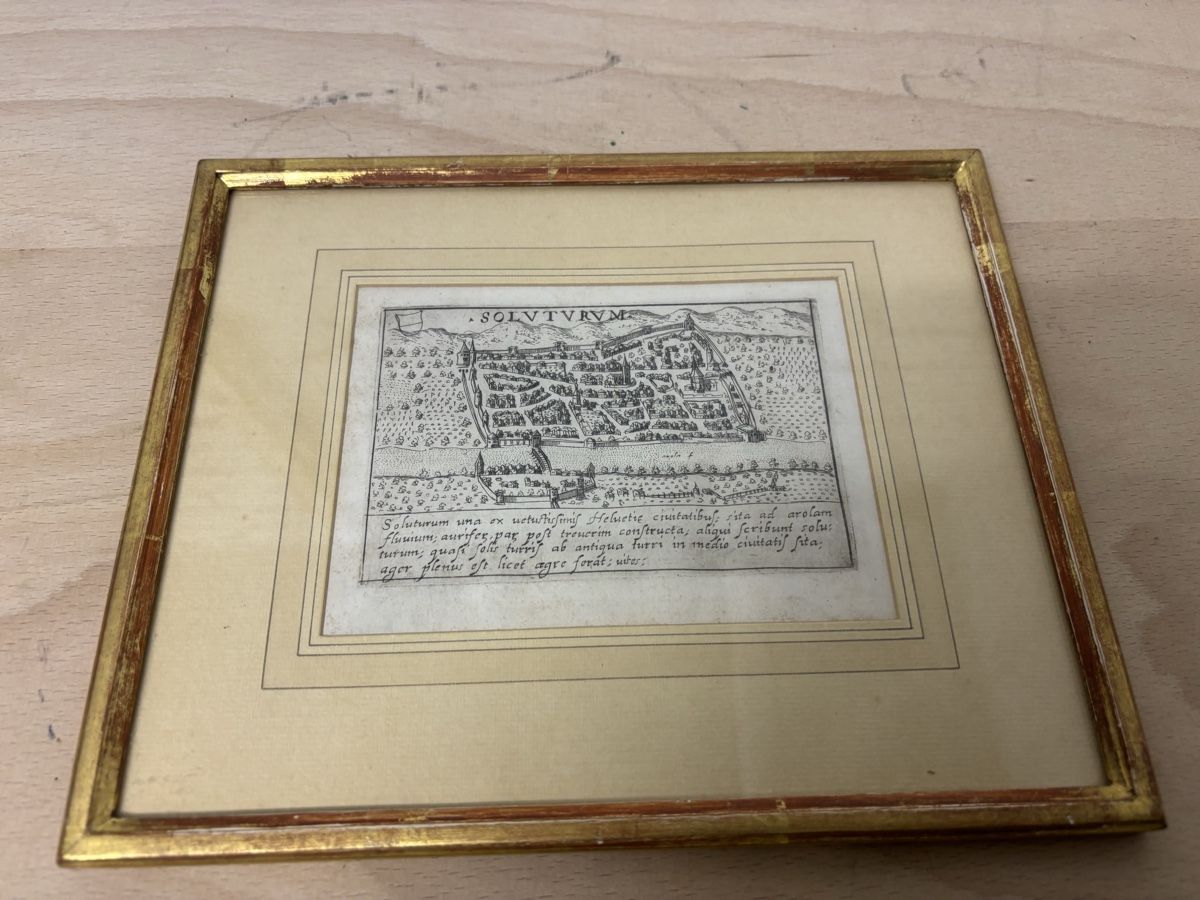 · SOLVTVRVM ·
arola f
Soluturum una ex uetustissimis Heluetie ciuitatibus; sita ad arolam
fluuium; aurifer, par post treuerim constructa; aliqui scribunt solu:
turum; quasi solis turris ab antiqua turri in medio ciuitatis sita;
ager plenus est licet ægre ferat; uites;